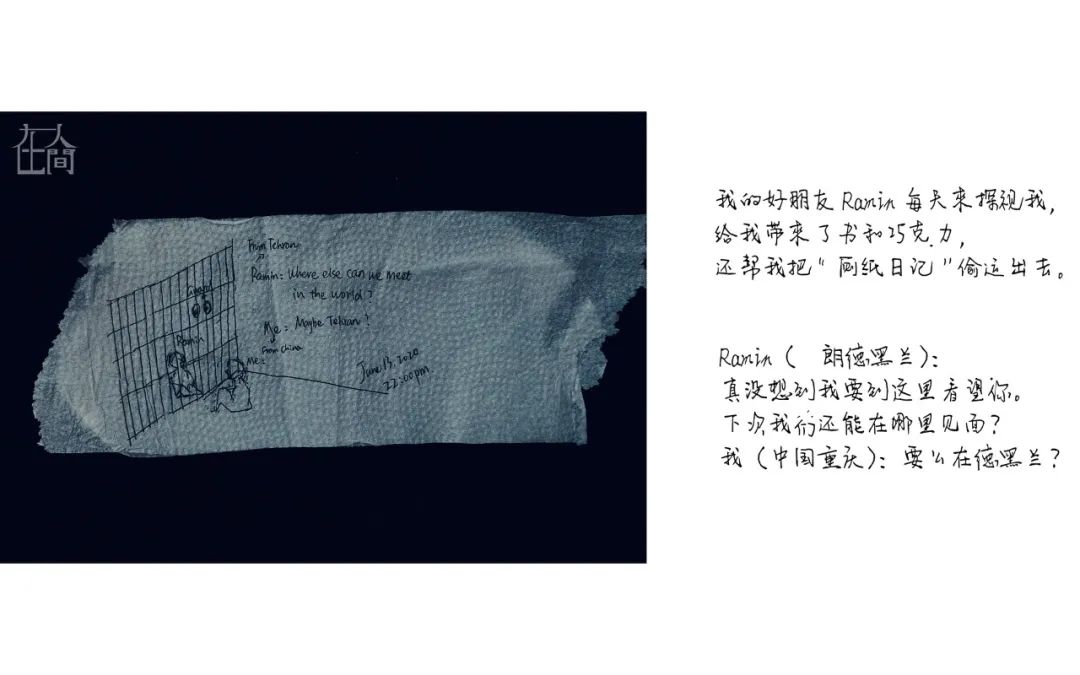 在人間
From Tehran
Ramin: Where else can we meet
in the world?
Guard
Me: Maybe Tehran?
From China
Ramin
Me:
June 13, 2020
22:00pm
我的好朋友Ramin每天来探视我，
给我带来了书和巧克力，
还帮我把“厕纸日记”偷运出去。
Ramin（ 朗德黑兰）：
真没想到我要到这里看望你。
下次我们还能在哪里见面？
我（中国重庆）：要么在德黑兰？